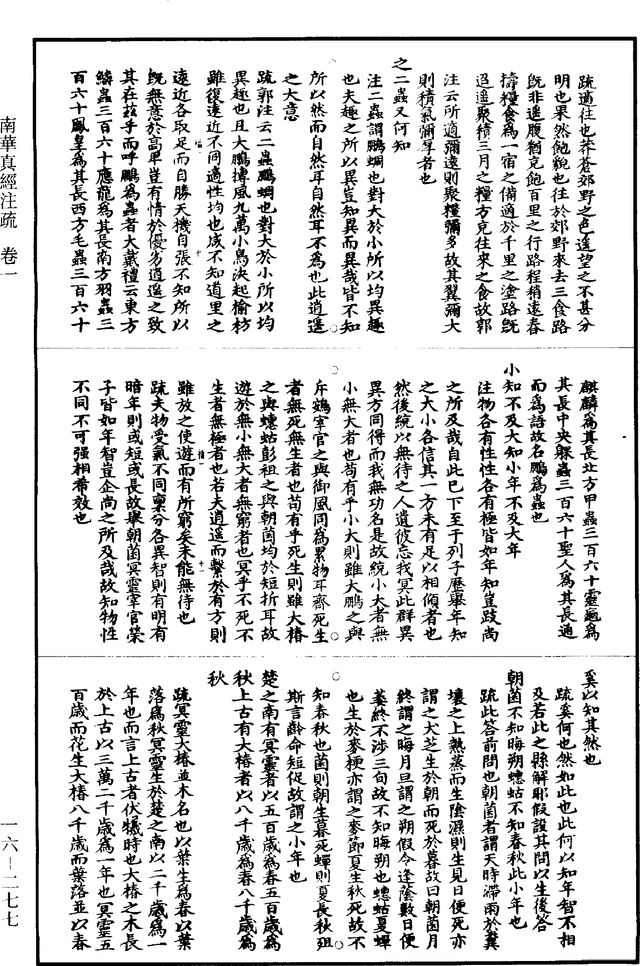 南華真經注疏　卷一
疏適往也莽蒼郊野之色遙望之不甚分
明也果然飽貌也往於郊野來去三食路
旣非遙腹猶充飽百里之行路程稍遠舂
擣糧食爲一宿之備適於千里之塗路旣
迢遙聚積三月之糧方充往來之食故郭
注云所適彌遠則聚糧彌多故其翼彌大
則積氣彌厚者也
之二蟲又何知
注二蟲謂鵬蜩也對大於小所以均異趣
也夫趣之所以異豈知異而異哉皆不知
所以然而自然耳自然耳不爲也此逍遙
之大意
疏郭注云二蟲鵬蜩也對大於小所以均
異趣也且大鵬摶風九萬小鳥決起榆枋
雖復遠近不同適性均也咸不知道里之
遠近各取足而自勝天機自張不知所以
旣無意於高卑豈有情於優劣逍遙之致
其在茲乎而呼鵬爲蟲者大戴禮云東方
鱗蟲三百六十應龍爲其長南方羽蟲三
百六十鳳皇爲其長西方毛蟲三百六十
麒麟爲其長北方甲蟲三百六十靈龜爲
其長中央躶蟲三百六十聖人爲其長通
而爲語故名鵬爲蟲也
小知不及大知小年不及大年
注物各有性性各有極皆如年知豈跂尚
之所及哉自此已下至于列子歷舉年知
之大小各信其一方未有足以相傾者也
然後統以無待之人遺彼忘我冥此群異
異方同得而我無功名是故統小大者無
小無大者也苟有乎小大則雖大鵬之與
斥鷃宰官之與御風同爲累物耳齊死生
者無死無生者也苟有乎死生則雖大椿
之與蟪蛄彭祖之與朝菌均於短折耳故
遊於無小無大者無窮者也冥乎不死不
生者無極者也若夫逍遙而繫於有方則
雖放之使遊而有所窮矣未能無待也
疏夫物受氣不同稟分各異智則有明有
暗年則或短或長故舉朝菌冥靈宰官榮
子皆如年智豈企尚之所及哉故知物性
不同不可強相希效也
奚以知其然也
疏奚何也然如此也此何以知年智不相
及若此之縣解耶假設其問以生後答
朝菌不知晦朔蟪蛄不知春秋此小年也
疏此答前問也朝菌者謂天時滯雨於糞
壤之上熱蒸而生陰濕則生見日便死亦
謂之大芝生於朝而死於暮故曰朝菌月
終謂之晦月旦謂之朔假令逢陰數日便
萎終不涉三旬故不知晦朔也蟪蛄夏蟬
也生於麥梗亦謂之麥節夏生秋死故不
知春秋也菌則朝生暮死蟬則夏長秋殂
斯言齡命短促故謂之小年也
楚之南有冥靈者以五百歲爲春五百歲爲
秋上古有大椿者以八千歲爲春八千歲爲
秋
疏冥靈大椿並木名也以葉生爲春以葉
落爲秋冥靈生於楚之南以二千歲爲一
年也而言上古者伏犧時也大椿之木長
於上古以三萬二千歲爲一年也冥靈五
百歲而花生大椿八千歲而葉落並以春
一六－二七七